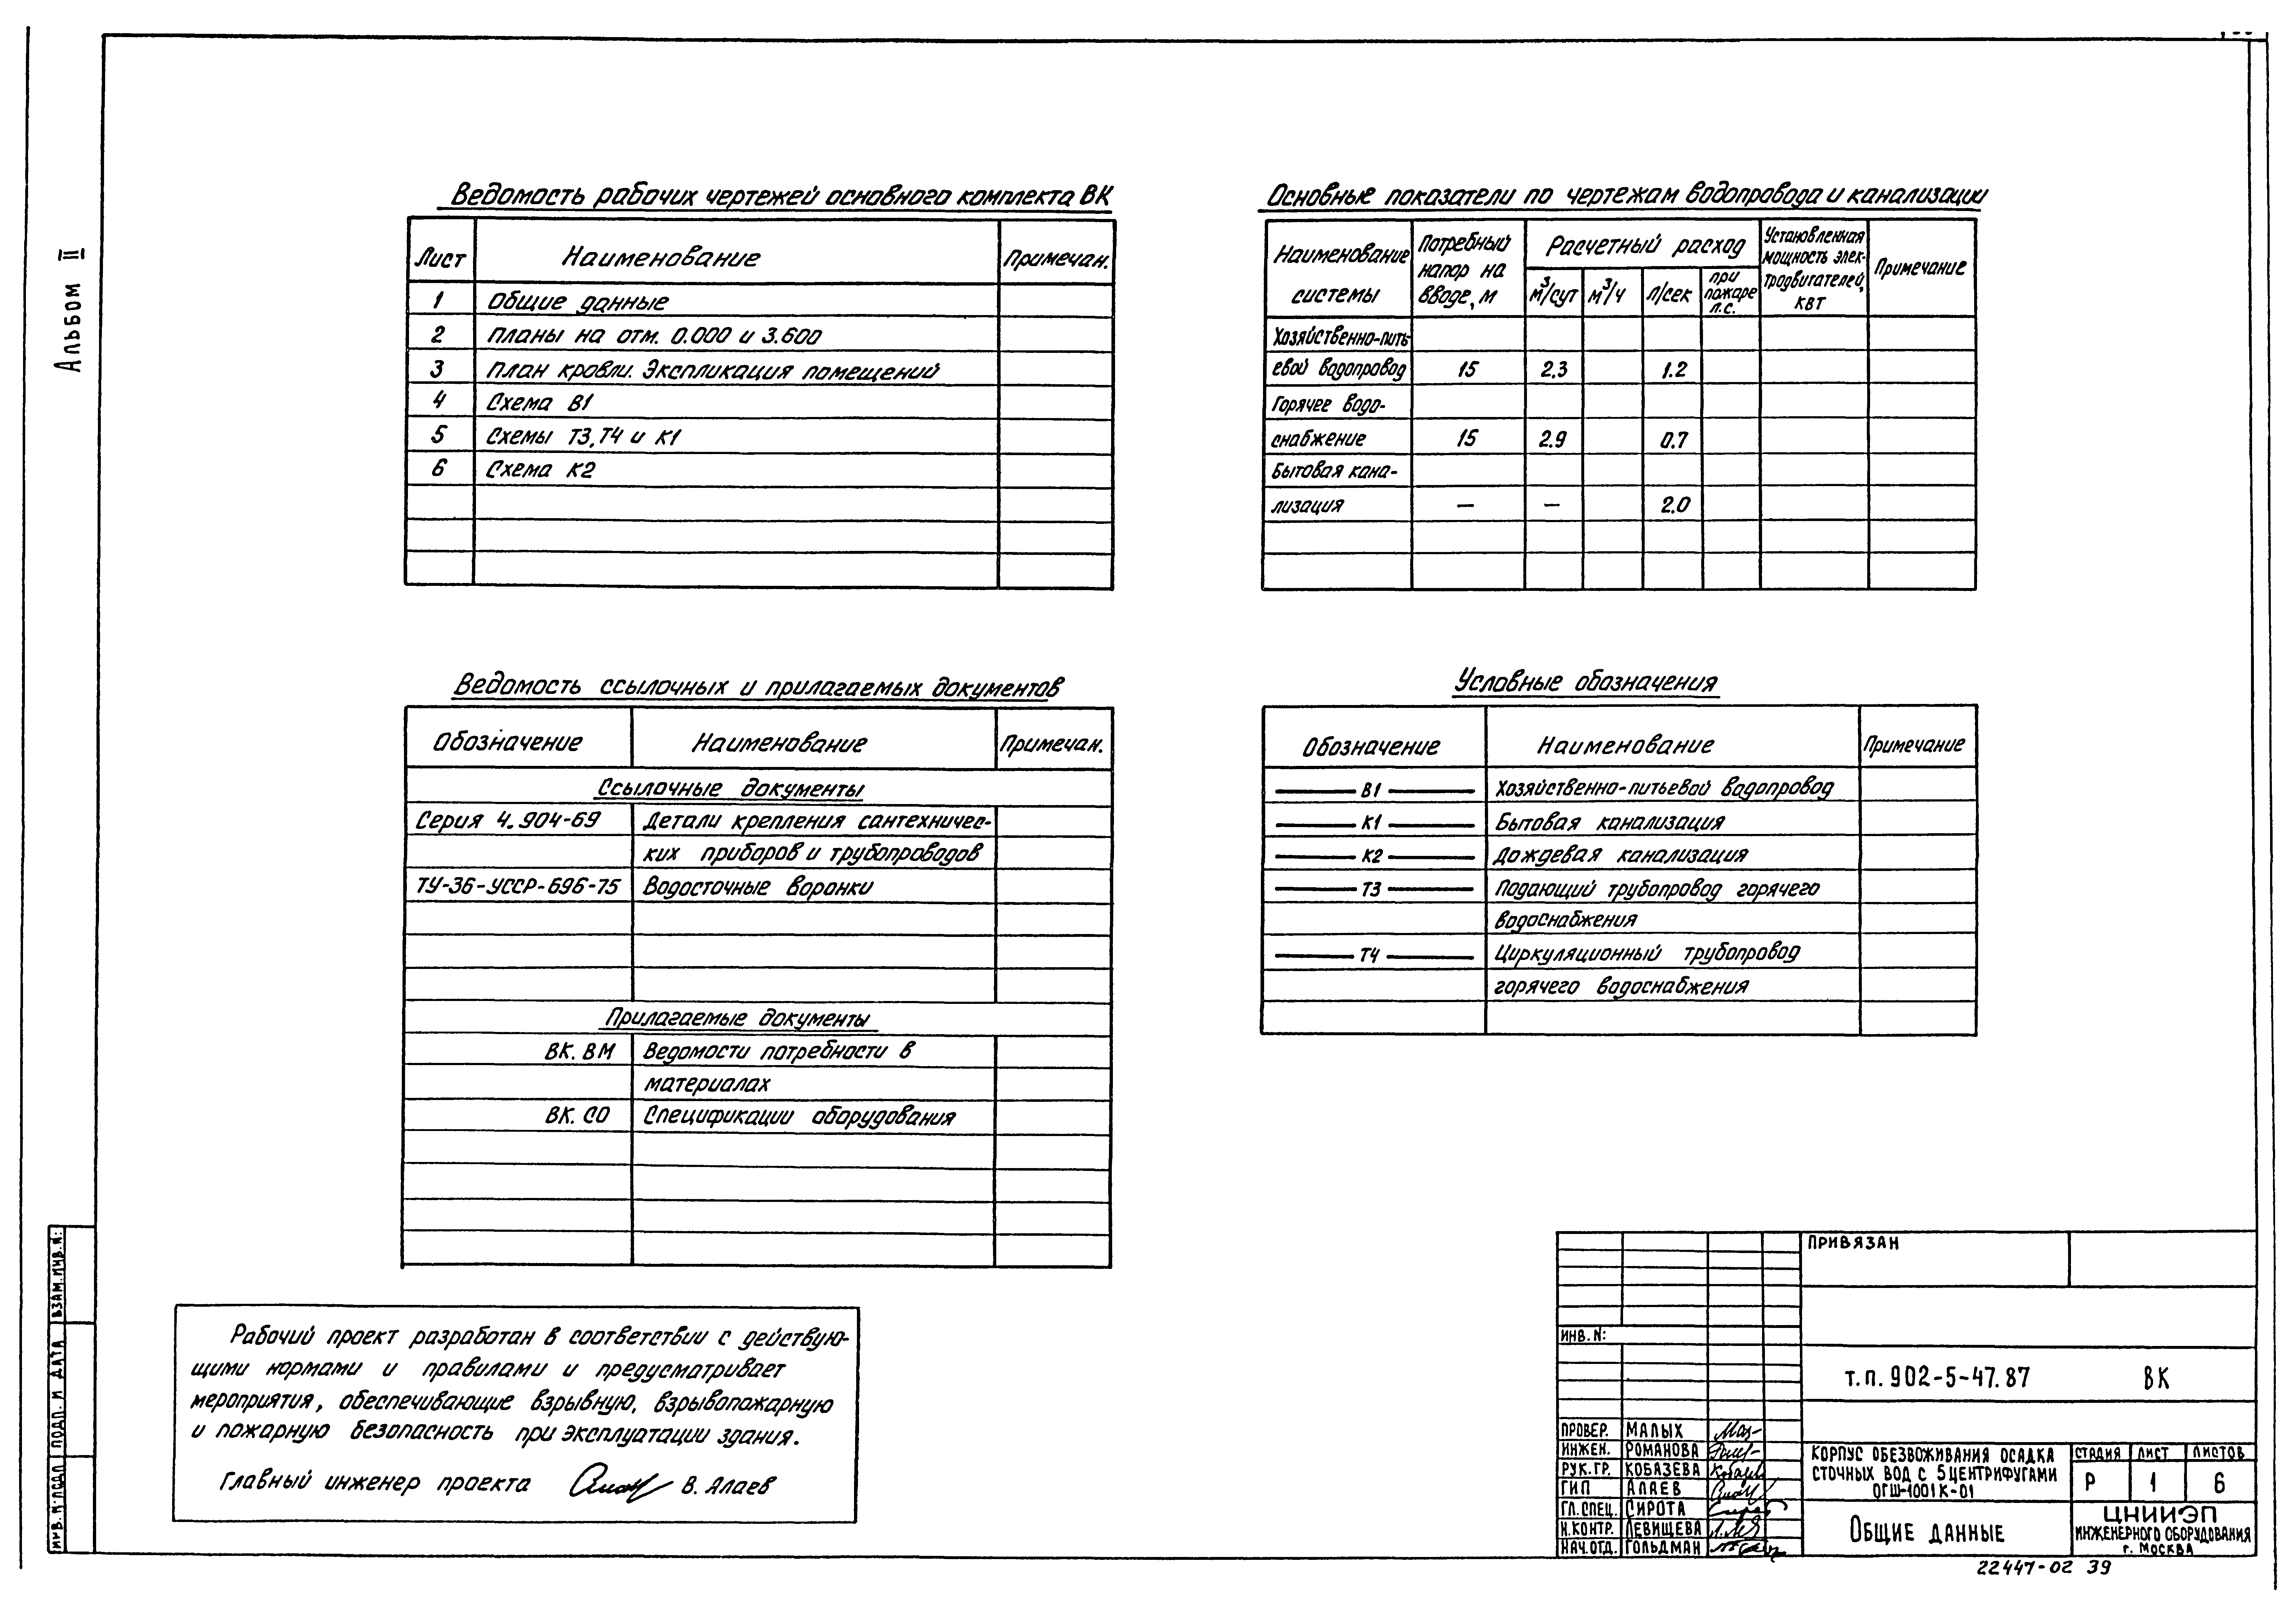 Альбом II
Ведомость рабочих чертежей основного комплекта ВК
Лист Наименование Примечан.
1 Общие данные
2 Планы на отм. 0.000 и 3.600
3 План кровли. Экспликация помещений
4 Схема В1
5 Схемы Т3, Т4 и К1
6 Схема К2
Основные показатели по чертежам водопровода и канализации
Наименование системы
Потребный напор на вводе, м
Расчетный расход
м³/сут м³/ч л/сек при пожаре л.с.
Установленная мощность элек-
тродвигателей, квт
Примечание
Хозяйственно-пить-
евой водопровод 15 2.3 1.2
Горячее водо-
снабжение 15 2.9 0.7
Бытовая кана-
лизация — — 2.0
Ведомость ссылочных и прилагаемых документов
Обозначение Наименование Примечан.
Ссылочные документы
Серия 4.904-69 Детали крепления сантехничес-
ких приборов и трубопроводов
ТУ-36-УССР-696-75 Водосточные воронки
Прилагаемые документы
ВК. ВМ Ведомости потребности в
материалах
ВК. СО Спецификации оборудования
Условные обозначения
Обозначение Наименование Примечание
В1 Хозяйственно-питьевой водопровод
К1 Бытовая канализация
К2 Дождевая канализация
Т3 Подающий трубопровод горячего
водоснабжения
Т4 Циркуляционный трубопровод
горячего водоснабжения
Рабочий проект разработан в соответствии с действую-
щими нормами и правилами и предусматривает
мероприятия, обеспечивающие взрывную, взрывопожарную
и пожарную безопасность при эксплуатации здания.
Главный инженер проекта В. Алаев
ИНВ. N: ПОДЛ ПОДП. И ДАТА ВЗАМ. ИНВ. N:
ПРИВЯЗАН
ИНВ. N:
т.п. 902-5-47.87 ВК
ПРОВЕР. МАЛЫХ
ИНЖЕН. РОМАНОВА
РУК. ГР. КОБАЗЕВА
ГИП АЛАЕВ
ГЛ. СПЕЦ. СИРОТА
Н. КОНТР. ЛЕВИЩЕВА
НАЧ. ОТД. ГОЛЬДМАН
КОРПУС ОБЕЗВОЖИВАНИЯ ОСАДКА
СТОЧНЫХ ВОД С 5 ЦЕНТРИФУГАМИ
ОГШ-1001К-01
СТАДИЯ ЛИСТ ЛИСТОВ
Р 1 6
ОБЩИЕ ДАННЫЕ
ЦНИИЭП
ИНЖЕНЕРНОГО ОБОРУДОВАНИЯ
г. МОСКВА
22447-02 39